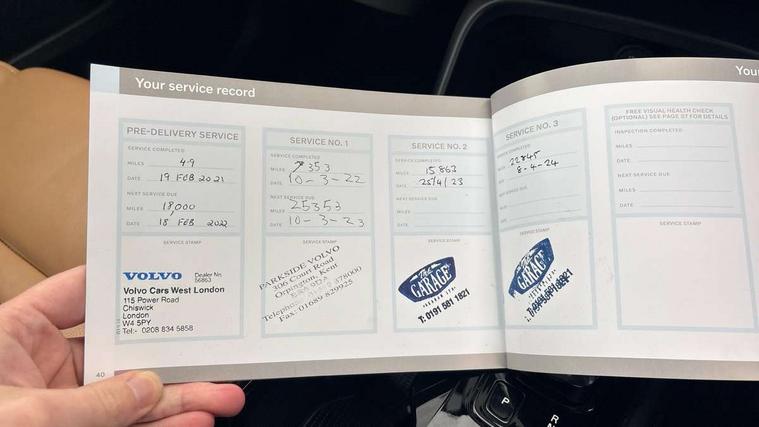 Your service record
You
PRE-DELIVERY SERVICE
SERVICE COMPLETED
MILES 49
DATE 19 FEB 2021
NEXT SERVICE DUE
MILES 18,000
DATE 18 FEB 2022
SERVICE STAMP
VOLVO Dealer No. 56863
Volvo Cars West London
115 Power Road
Chiswick
London
W4 5PY
Tel:- 0208 834 5858
SERVICE NO. 1
SERVICE COMPLETED
MILES 7353
DATE 10-3-22
NEXT SERVICE DUE
MILES 25353
DATE 10-3-23
SERVICE STAMP
PARKSIDE VOLVO
306 Court Road
Orpington, Kent
Fax: 01689 829925
SERVICE NO. 2
SERVICE COMPLETED
MILES 15863
DATE 25/4/23
NEXT SERVICE DUE
MILES
DATE
SERVICE STAMP
The
GARAGE
T: 0191 581 1821
SERVICE NO. 3
SERVICE COMPLETED
MILES 22845
DATE 8-4-24
NEXT SERVICE DUE
MILES
DATE
SERVICE STAMP
The
GARAGE
FREE VISUAL HEALTH CHECK
(OPTIONAL) SEE PAGE 57 FOR DETAILS
INSPECTION COMPLETED
MILES
DATE
NEXT SERVICE DUE
MILES
DATE
SERVICE STAMP
40
P
R
N